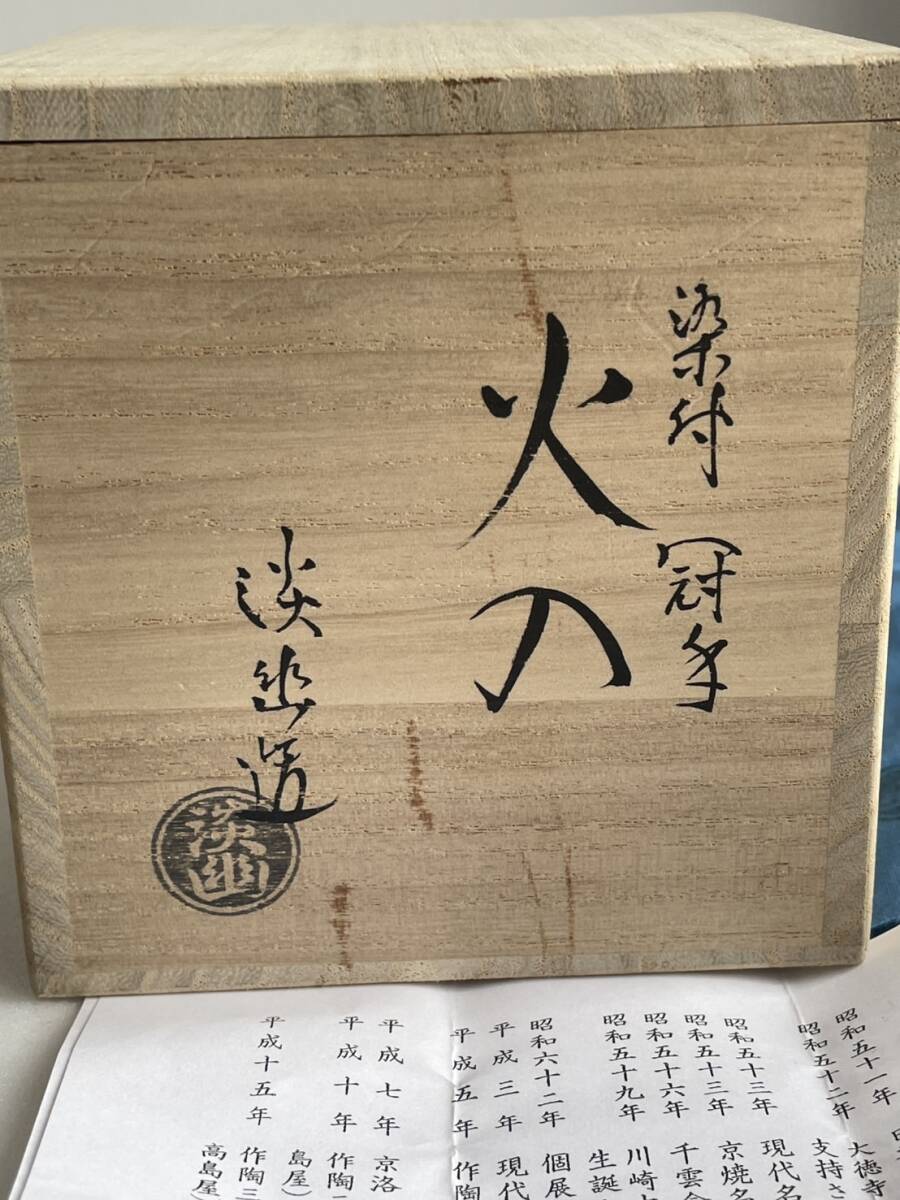 染付 冠手
火入
淡幽造
淡幽
昭和五十一年
昭和五十二年 大徳寺
昭和五十三年 支持さ
昭和五十三年 現代名
昭和五十六年 京焼
昭和五十九年 千雲
昭和六十二年 川崎
平成三年 生誕
平成五年 個展
平成七年 現代
平成十年 作陶
平成十五年 京洛
作陶
島屋
作陶三
高島屋